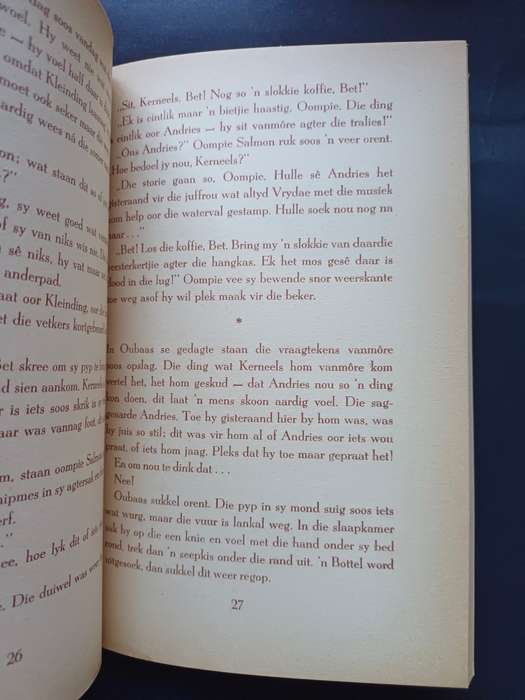 dag soos vandag
voel. Hy weet nie
e — hy voel half daar
omdat Kleinding
moet ook seker maar
aardig wees ná die
on; wat staan da so
?"
g, sy weet goed wat
of sy van niks wis nie.
sê niks, hy vat maar
anderpad.
aat oor Kleinding,
et die vetkers kortgebrand
et skree om sy pyp te
d sien aankom.
r is iets soos skrik is
aar was vannag fout,
m, staan oompie Salmon
nipmes in sy agtersak
erf.
."
ee, hoe lyk dit of
. Die duiwel was
26
„Sit, Kerneels. Bet! Nog so 'n slokkie koffie, Bet!"
„Ek is eintlik maar 'n bietjie haastig, Oompie. Die ding
is eintlik oor Andries — hy sit vanmôre agter die tralies!"
„Ons Andries?" Oompie Salmon ruk soos 'n veer orent.
„Hoe bedoel jy nou, Kerneels?"
„Die storie gaan so, Oompie. Hulle sê Andries het
gisteraand vir die juffrou wat altyd Vrydae met die musiek
kom help oor die waterval gestamp. Hulle soek nou nog na
haar . . ."
„Bet! Los die koffie, Bet. Bring my 'n slokkie van daardie
meesterkertjie agter die hangkas. Ek het mos gesê daar is
dood in die lug!" Oompie vee sy bewende snor weerskante
toe weg asof hy wil plek maak vir die beker.
*
In Oubaas se gedagte staan die vraagtekens vanmôre
soos opslag. Die ding wat Kerneels hom vanmôre kom
vertel het, het hom geskud — dat Andries nou so 'n ding
kon doen, dit laat 'n mens skoon aardig voel. Die sag-
geaarde Andries. Toe hy gisteraand hier by hom was, was
hy juis so stil; dit was vir hom al of Andries oor iets wou
praat, of iets hom jaag. Pleks dat hy toe maar gepraat het!
En om nou te dink dat . . .
Nee!
Oubaas sukkel orent. Die pyp in sy mond suig soos iets
wat wurg, maar die vuur is lankal weg. In die slaapkamer
sak hy op die een knie en voel met die hand onder sy bed
rond, trek dan 'n seepkis onder die rand uit. 'n Bottel word
uitgesoek, dan sukkel dit weer regop.
27